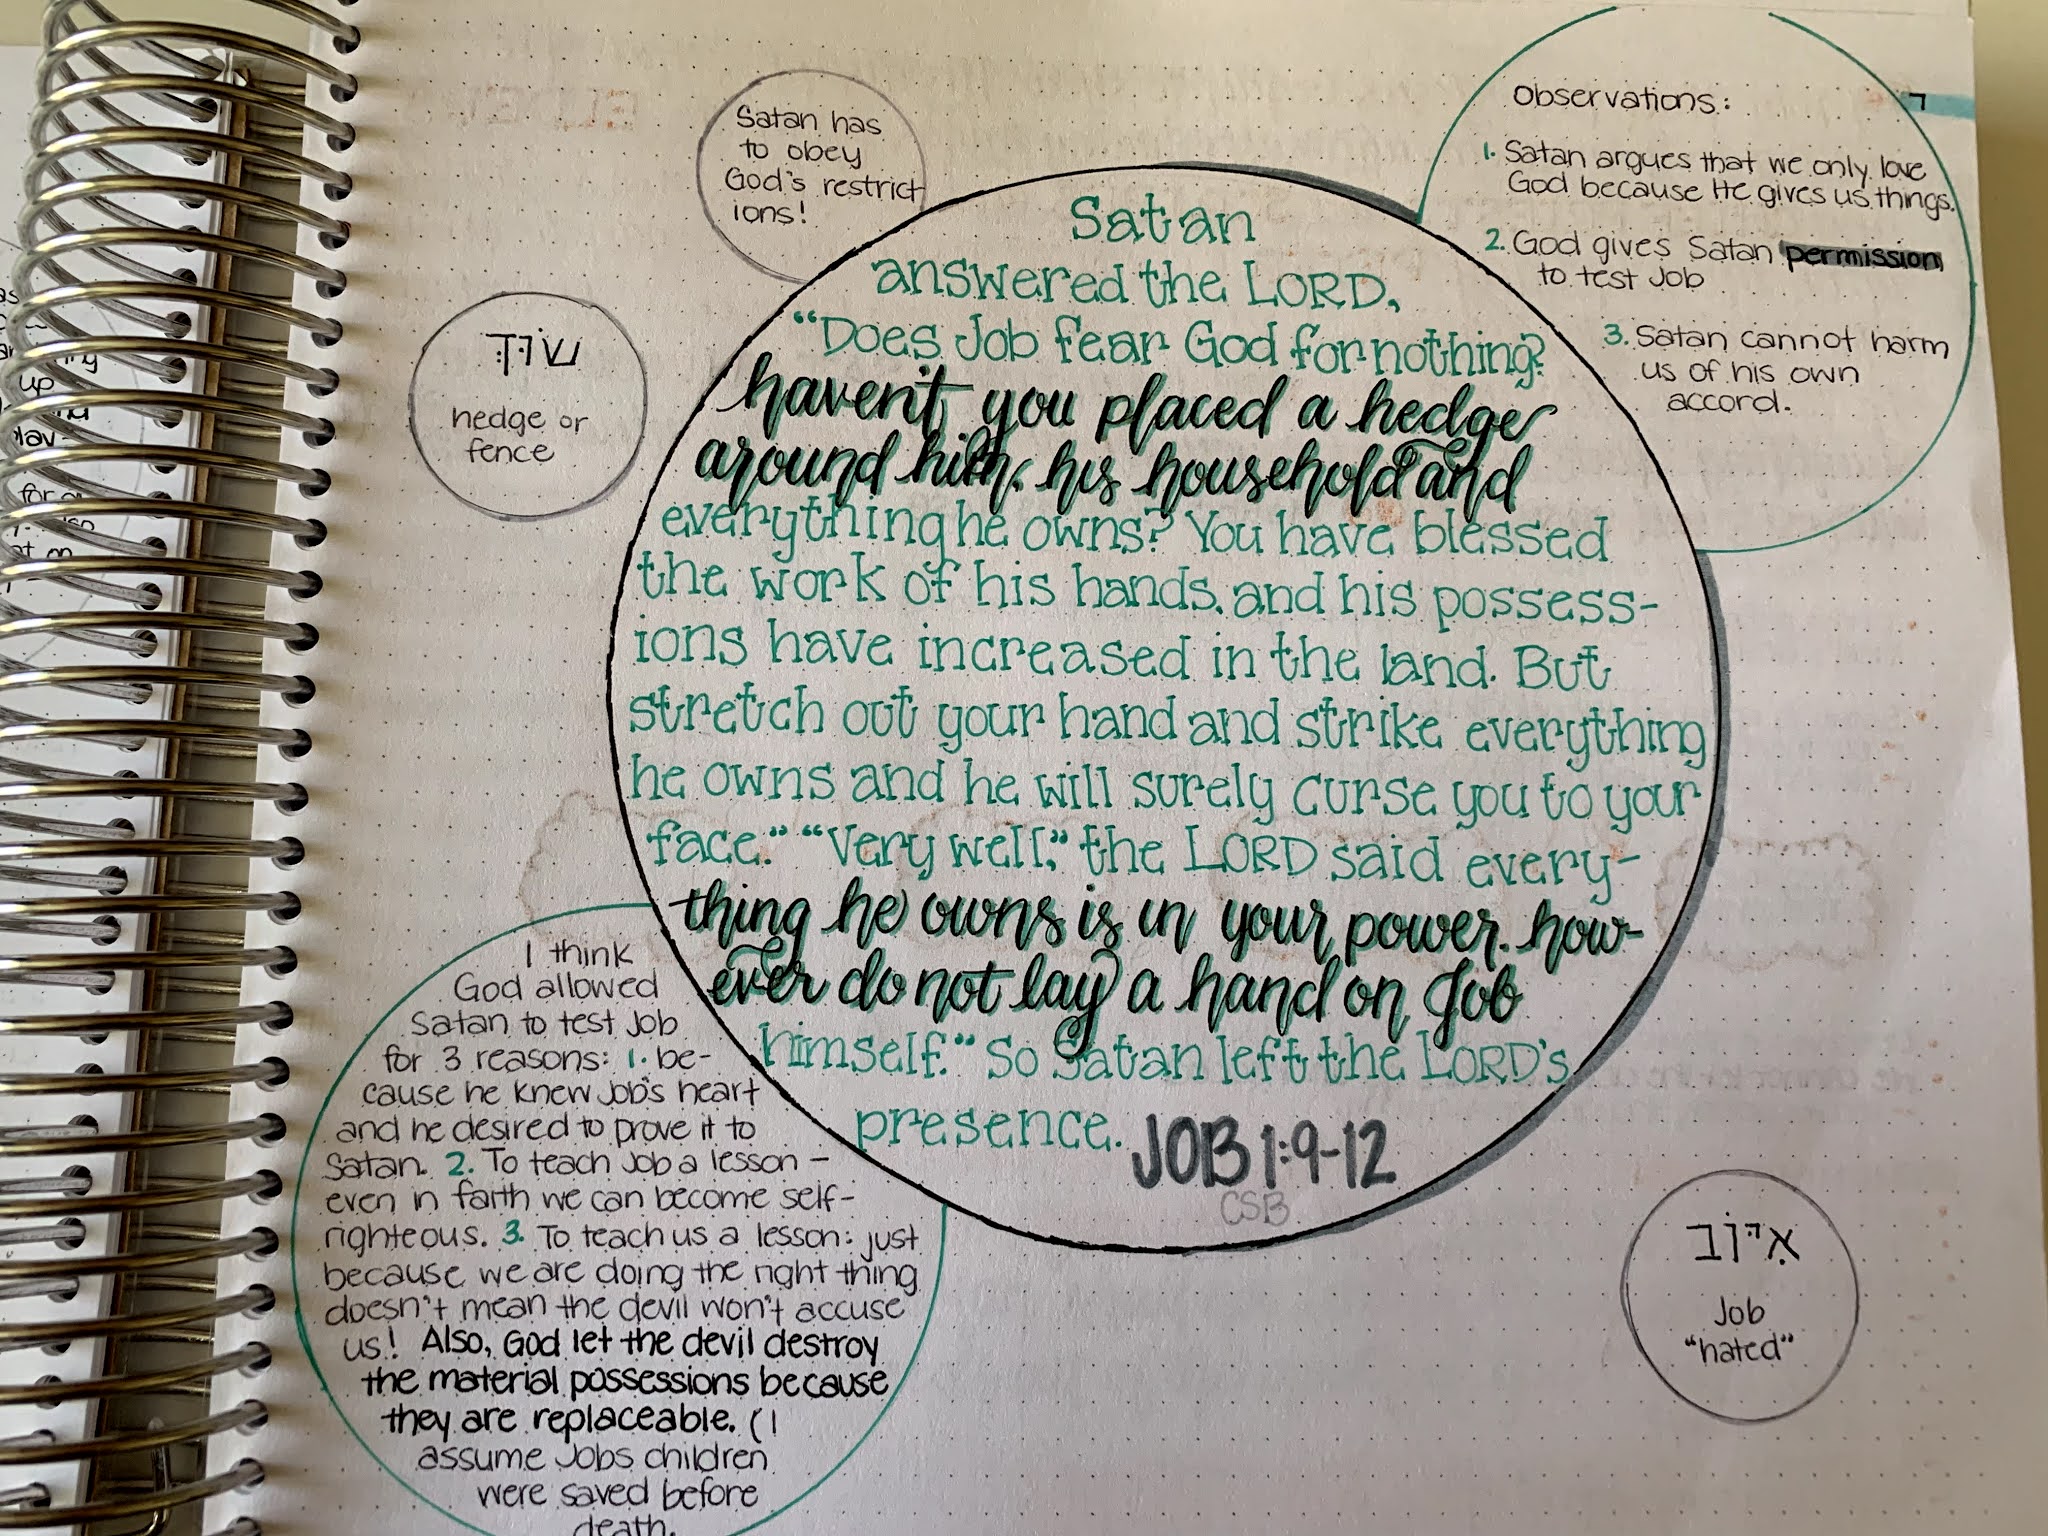 Satan has
to obey
God's restrict
ions!
Observations:
1. Satan argues that we only love
God because He gives us things.
2. God gives Satan permission
to test Job
3. Satan cannot harm
us of his own
accord.
hedge or
fence
Satan
answered the LORD,
"Does Job fear God for nothing?
haven't you placed a hedge
around him, his household and
everything he owns? You have blessed
the work of his hands, and his possess-
ions have increased in the land. But
stretch out your hand and strike everything
he owns and he will surely curse you to your
face." "Very well," the LORD said every-
thing he owns is in your power. how-
ever do not lay a hand on Job
himself." So Satan left the LORD's
presence. JOB 1:9-12
CSB
I think
God allowed
Satan to test Job
for 3 reasons: 1. be-
cause he knew Job's heart
and he desired to prove it to
Satan. 2. To teach Job a lesson -
even in faith we can become self-
righteous. 3. To teach us a lesson: just
because we are doing the right thing
doesn't mean the devil won't accuse
us! Also, God let the devil destroy
the material possessions because
they are replaceable. (I
assume Jobs children
were saved before
death.
אִיּוֹב
Job
"hated"